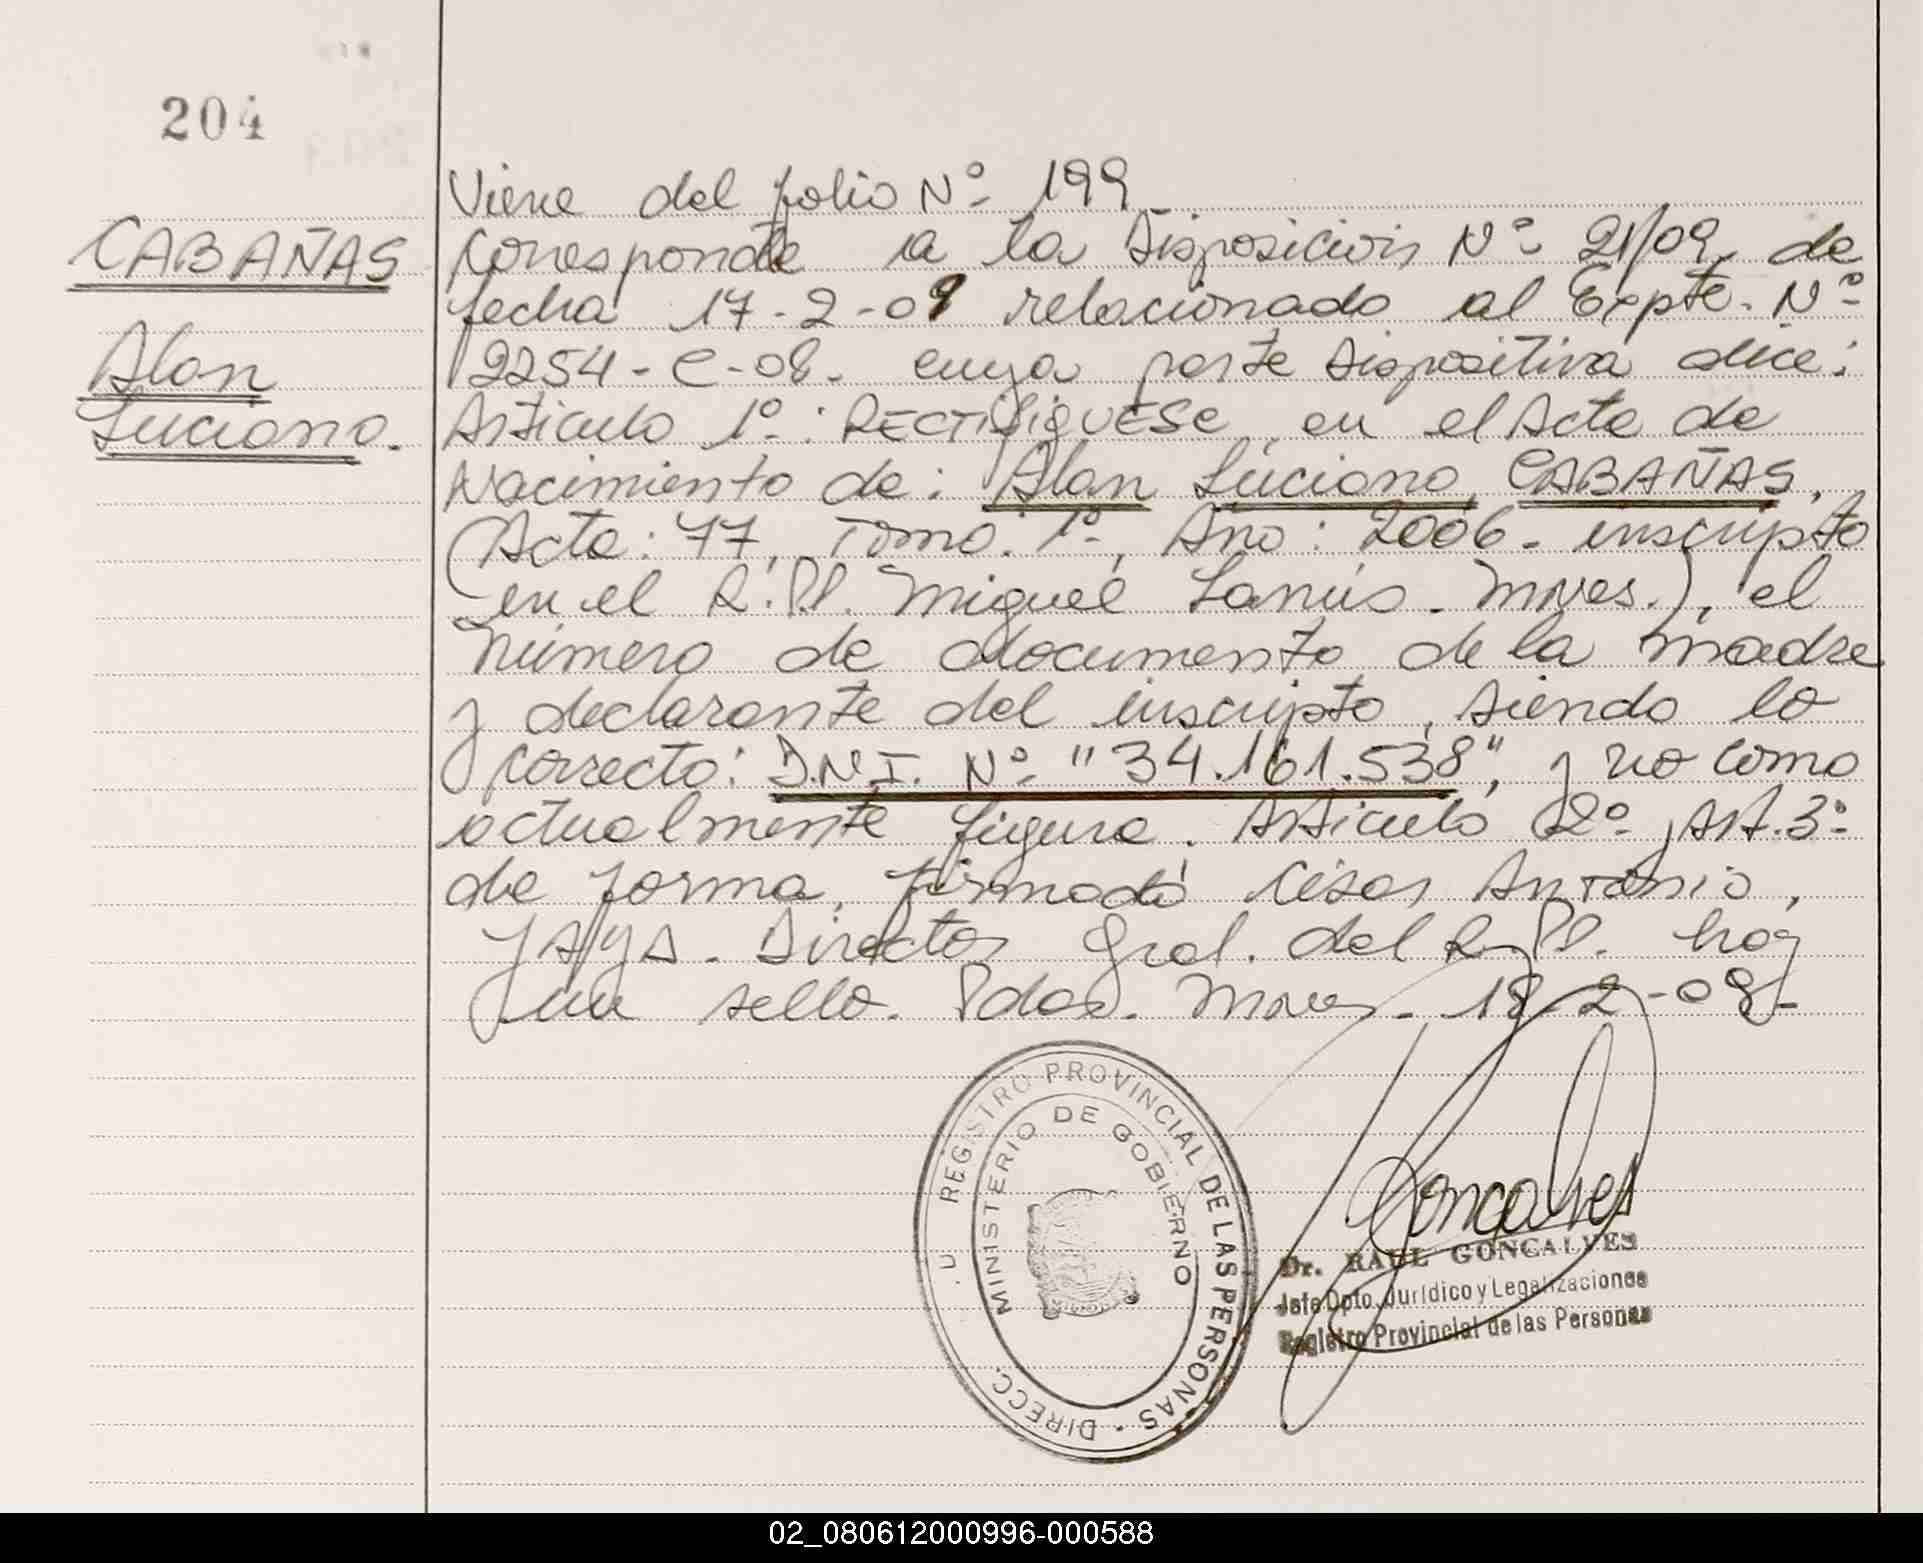 204
CABAÑAS
Alan
Luciano.
Viene del folio Nº 199
Corresponde a la Disposición Nº 21/09, de
fecha 17-2-09 relacionado al Expte. Nº
2254-C-08. cuya parte dispositiva dice:
Artículo 1º: RECTIFIQUESE, en el Acta de
Nacimiento de: Alan Luciano, CABAÑAS,
(Acta: 77, Tomo: 1º, Año: 2006. inscripto
en el R.PP. Miguel Lanús. Mnes.), el
número de documento de la madre
y declarante del inscripto, siendo lo
correcto: D.N.I. Nº "34.161.538", y no como
actualmente figura. Artículo 2º, Art. 3º
de forma, firmado César Antonio,
Director Gral. del R.PP. hay
un sello. Pdas. Mnes. 18-2-09-
DIRECC. U REGISTRO PROVINCIAL DE LAS PERSONAS -
MINISTERIO DE GOBIERNO
Goncalves
Dr. RAUL GONCALVES
Jefe Dpto. Jurídico y Legalizaciones
Registro Provincial de las Personas
02_080612000996-000588